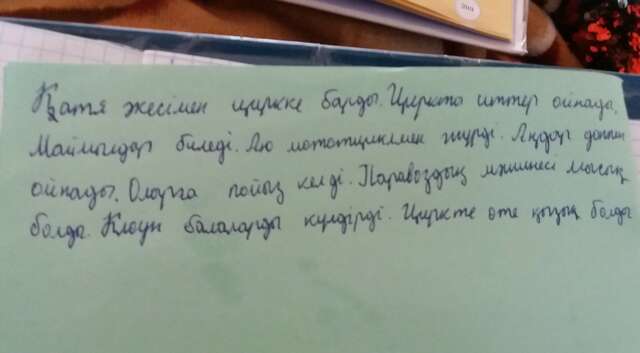 Катя әжесімен циркке барды. Цирктә иттер ойнады.
Маймылдар биледі. Аю мотоциклмен жүрді. Аңдар доппен
ойнады. Оларға пойыз келді. Паравоздың машинесі мысық
болды. Клоун балаларды күлдірді. Циркте өте қызық болды